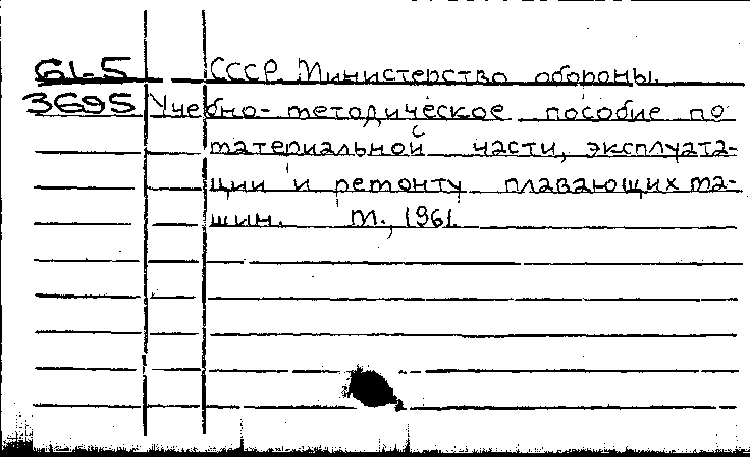 61-5 СССР. Министерство обороны.
3695 Учебно-методическое пособие по
материальной части, эксплуата-
ции и ремонту плавающих ма-
шин. М., 1961.